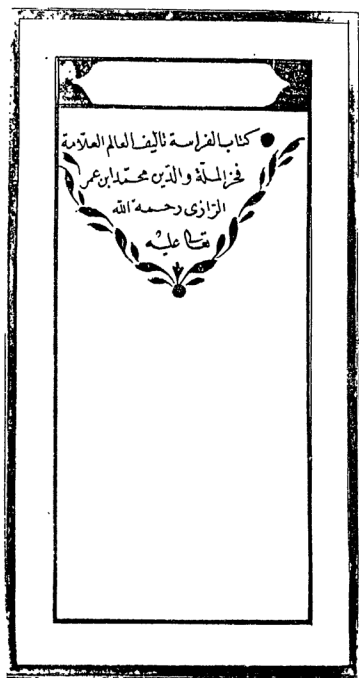 كتاب الفراسة تاليف العالم العلامة
فخر الملة والدين محمد ابن عمر
الرازى رحمة الله
تعالى عليه